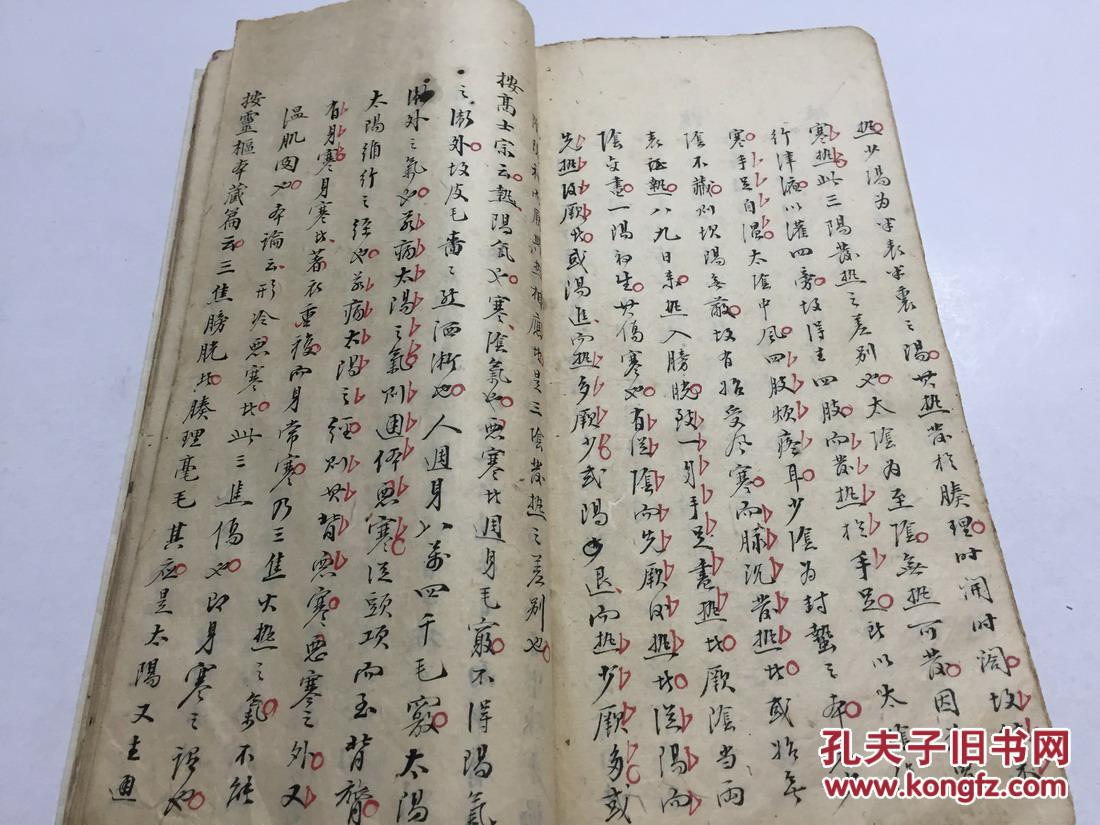 热少陽为半表半裏之陽其热發於腠理时開时闔故
寒热此三陽發热之差别也太陰为至陰無热可發因
行津液以灌四旁故得主四肢而發热於手足所以太陰
寒手足自温太陰中風四肢烦疼耳少陰为封蟄之本
陰不藏则坎陽無蔽故有始受风寒而脉沉發热者或始無
表证热八九日来热入膀胱致一身手足盡热者厥陰当两
陰交盡一陽初生其傷寒也有從陰而先厥後热者從陽而
先热後厥者或陽進而热多厥少或陽退而热少厥多或
热相應者是三陰發热之差别也
按高士宗云熱陽氣也寒陰氣也恶寒者週身毛竅不得陽氣
之衛外故皮毛嗇嗇然洒淅也人週身八萬四千毛竅太陽
衛外之氣也若病太陽之氣则通体恶寒從頭項而至背膂
太陽循行之經也若病太陽之經则其背恶寒恶寒之外又
有身寒身寒者著衣重複而身常寒乃三焦火热之氣不能
温肌肉也本論云形冷恶寒者此三焦傷也即身寒之謂也
按靈樞本藏篇云三焦膀胱者腠理毫毛其应是太陽又主通
孔夫子旧书网
www.kongfz.com